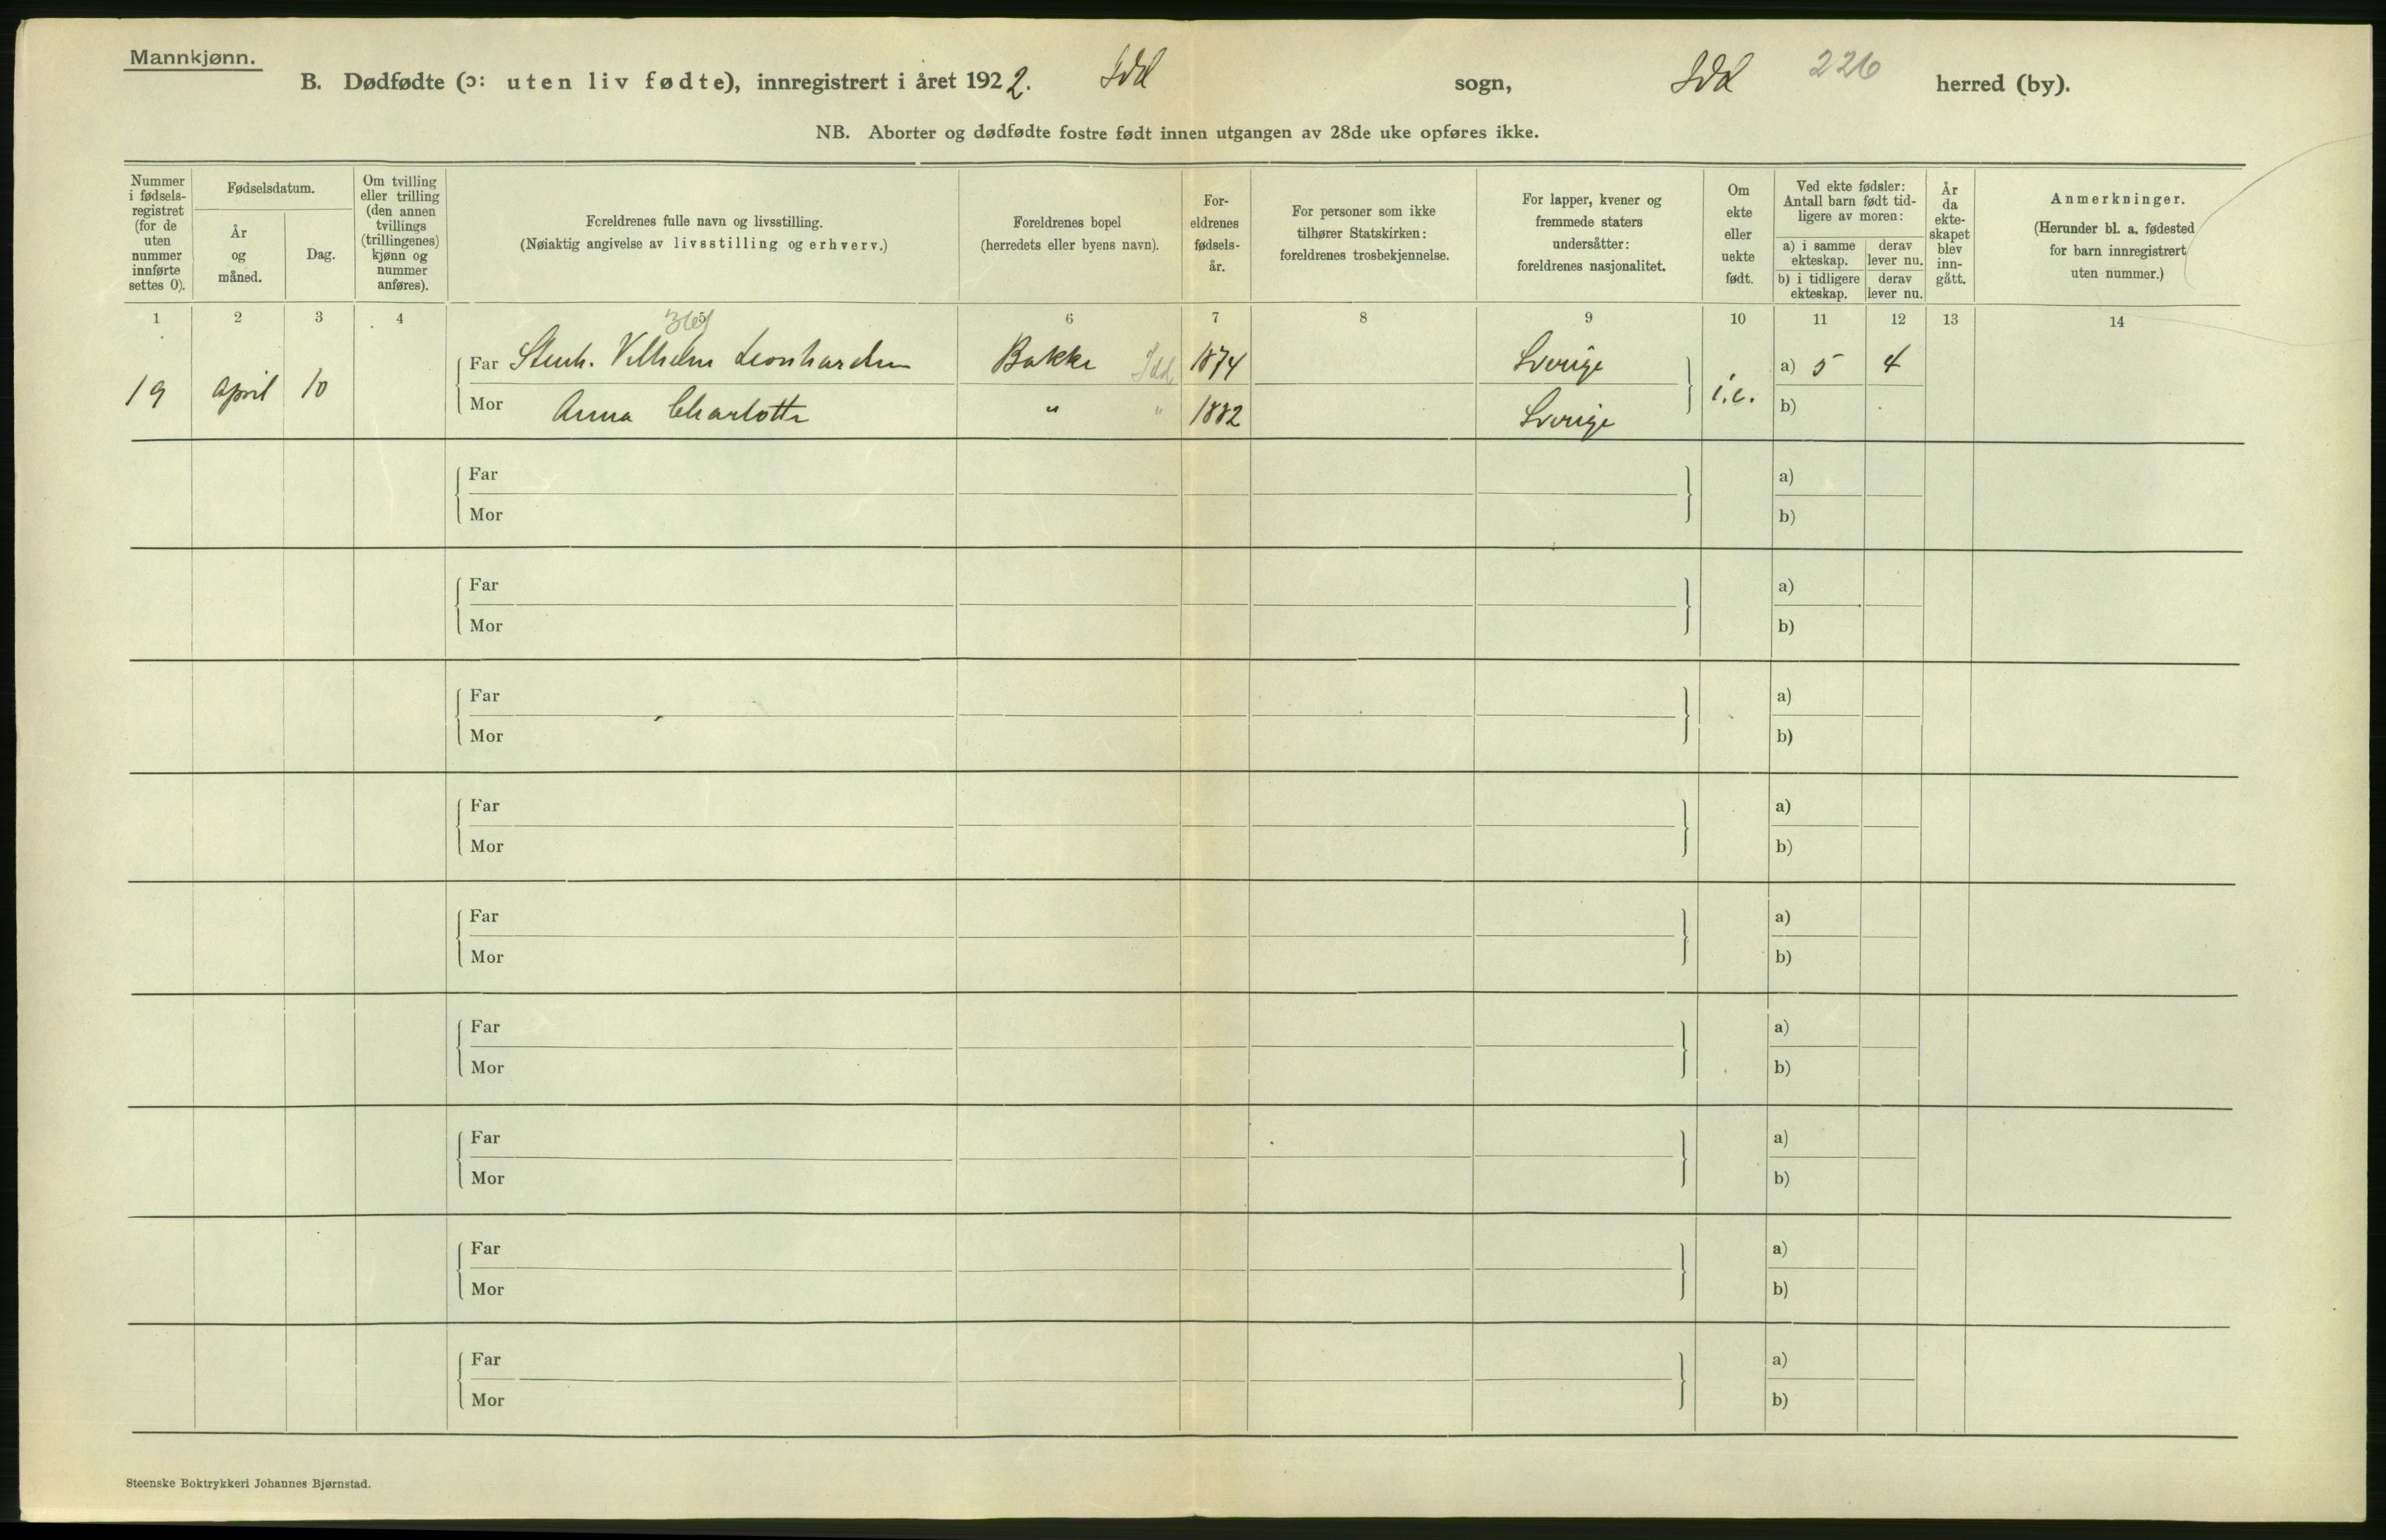 Mannkjønn.
B. Dødfødte (ɔ: uten liv fødte), innregistrert i året 1922. Idd sogn, Idd 226 herred (by).
NB. Aborter og dødfødte fostre født innen utgangen av 28de uke opføres ikke.
Nummer i fødsels-registret (for de uten nummer innførte settes 0).
Fødselsdatum.
År og måned.
Dag.
Om tvilling eller trilling (den annen tvillings (trillingenes) kjønn og nummer anføres).
Foreldrenes fulle navn og livsstilling.
(Nøiaktig angivelse av livsstilling og erhverv.)
Foreldrenes bopel
(herredets eller byens navn).
For-eldrenes fødsels-år.
For personer som ikke tilhører Statskirken: foreldrenes trosbekjennelse.
For lapper, kvener og fremmede staters undersåtter: foreldrenes nasjonalitet.
Om ekte eller uekte født.
Ved ekte fødsler: Antall barn født tid-ligere av moren:
a) i samme ekteskap.
derav lever nu.
b) i tidligere ekteskap.
derav lever nu.
År da ekte-skapet blev inn-gått.
Anmerkninger.
(Herunder bl. a. fødested for barn innregistrert uten nummer.)
1 2 3 4 5 6 7 8 9 10 11 12 13 14
19 April 10
Far Stenh. Vilhelm Leonhardsen Bakke Idd 1874 Sverige a) 5 4
Mor Anna Charlotte " " 1882 Sverige b)
Far a)
Mor b)
Far a)
Mor b)
Far a)
Mor b)
Far a)
Mor b)
Far a)
Mor b)
Far a)
Mor b)
Far a)
Mor b)
Far a)
Mor b)
Far a)
Mor b)
Steenske Boktrykkeri Johannes Bjørnstad.